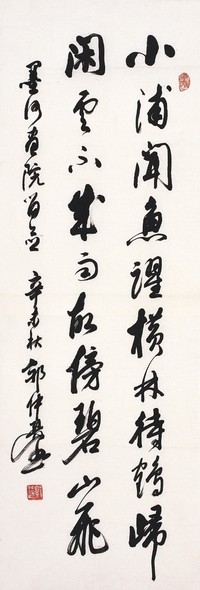 小浦闻鱼跃横林待鹤归
闲云不成雨故傍碧山飞
墨河画院留念 辛未秋 郭仲选书